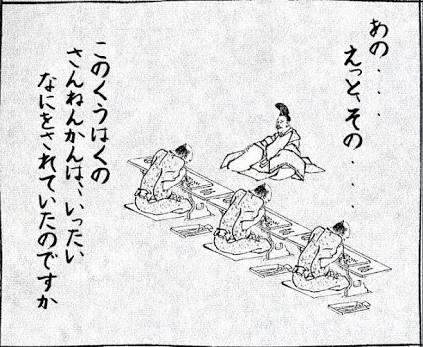 あの・・・
えっと、その・・・
このくうはくの
さんねんかんは、いったい
なにをされていたのですか